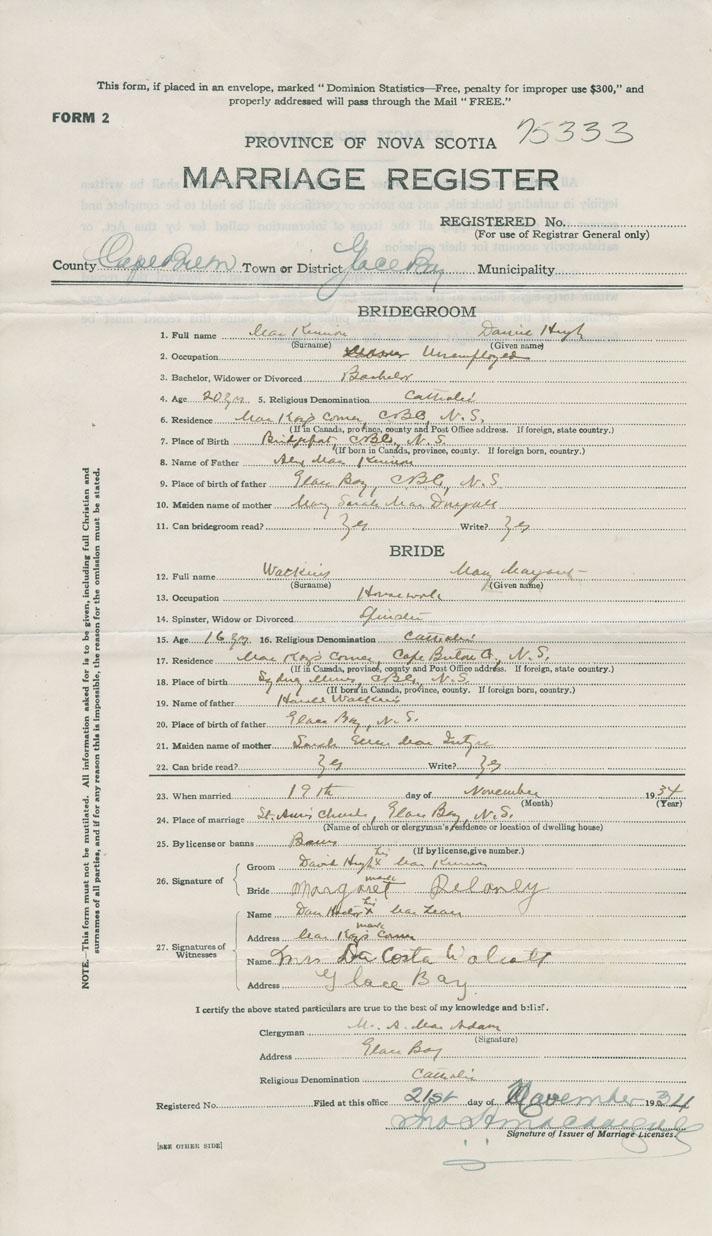 This form, if placed in an envelope, marked "Dominion Statistics—Free, penalty for improper use $300," and
properly addressed will pass through the Mail "FREE."
FORM 2
75333
PROVINCE OF NOVA SCOTIA
MARRIAGE REGISTER
REGISTERED No.
(For use of Registrar General only)
County Cape Breton Town or District Glace Bay Municipality
BRIDEGROOM
1. Full name Mac Kinnon Hugh
(Surname) (Given name)
2. Occupation Unemployed
3. Bachelor, Widower or Divorced Bachelor
4. Age 20 yrs. 5. Religious Denomination Catholic
6. Residence Mac Kay's Corner, C.B.Co, N.S.
(If in Canada, province, county and Post Office address. If foreign, state country.)
7. Place of Birth C.B.Co, N.S.
(If born in Canada, province, county. If foreign born, country.)
8. Name of Father Alex Mac Kinnon
9. Place of birth of father Glace Bay, C.B.Co, N.S.
10. Maiden name of mother Mary Sarah Mac Dougall
11. Can bridegroom read? Yes Write? Yes
BRIDE
12. Full name Watkins Mary Margaret
(Surname) (Given name)
13. Occupation Housework
14. Spinster, Widow or Divorced Spinster
15. Age 16 yrs. 16. Religious Denomination Catholic
17. Residence Mac Kay's Corner, Cape Breton Co, N.S.
(If in Canada, province, county and Post Office address. If foreign, state country.)
18. Place of birth Sydney Mines, C.B.Co, N.S.
(If born in Canada, province, county. If foreign born, country.)
19. Name of father Watkins
20. Place of birth of father Glace Bay, N.S.
21. Maiden name of mother Sarah Mac Intyre
22. Can bride read? Yes Write? Yes
23. When married 19th day of November 1934
(Month) (Year)
24. Place of marriage St. Ann's Church, Glace Bay, N.S.
(Name of church or clergyman's residence or location of dwelling house)
25. By license or banns Banns
(If by license, give number.)
26. Signature of
Groom Hugh his X mark Mac Kinnon
Bride Margaret Delaney
27. Signatures of Witnesses
Name Dan Hector his X mark Mac Lean
Address Mac Kay's Corner
Name Mrs Da Costa Wolcott
Address Glace Bay
I certify the above stated particulars are true to the best of my knowledge and belief.
Clergyman M. A. Mac Adam
(Signature)
Address Glace Bay
Religious Denomination Catholic
Registered No. Filed at this office 21st day of November 1934
Signature of Issuer of Marriage Licenses.
[SEE OTHER SIDE]
NOTE.—This form must not be mutilated. All information asked for is to be given, including full Christian and
surnames of all parties, and if for any reason this is impossible, the reason for the omission must be stated.